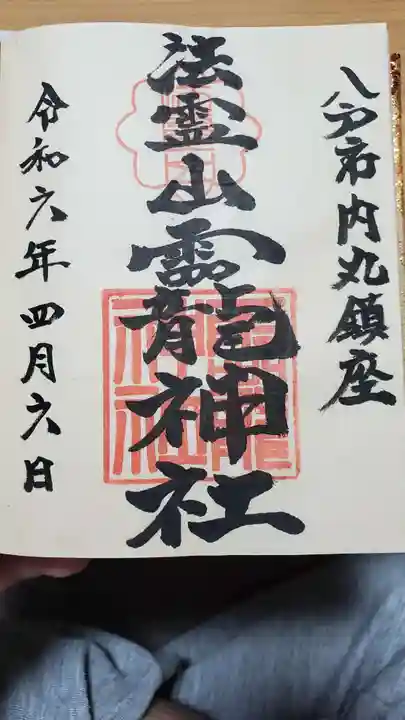 八戸市内丸鎮座
法霊山龗神社
令和六年四月六日